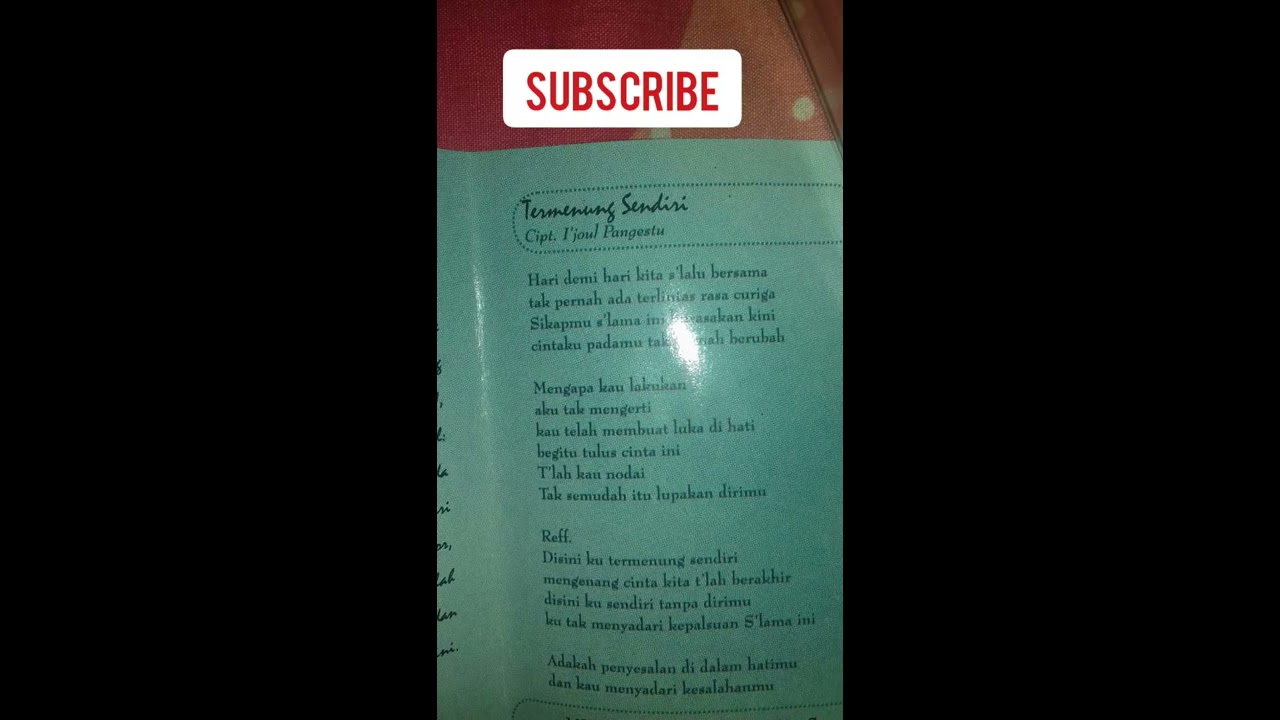 SUBSCRIBE
Termenung Sendiri
Cipt. I'joul Pangestu
Hari demi hari kita s'lalu bersama
tak pernah ada terlintas rasa curiga
Sikapmu s'lama ini kini
cintaku padamu tak berubah
Mengapa kau lakukan
aku tak mengerti
kau telah membuat luka di hati
begitu tulus cinta ini
T'lah kau nodai
Tak semudah itu lupakan dirimu
Reff.
Disini ku termenung sendiri
mengenang cinta kita t'lah berakhir
disini ku sendiri tanpa dirimu
ku tak menyadari kepalsuan S'lama ini
Adakah penyesalan di dalam hatimu
dan kau menyadari kesalahanmu